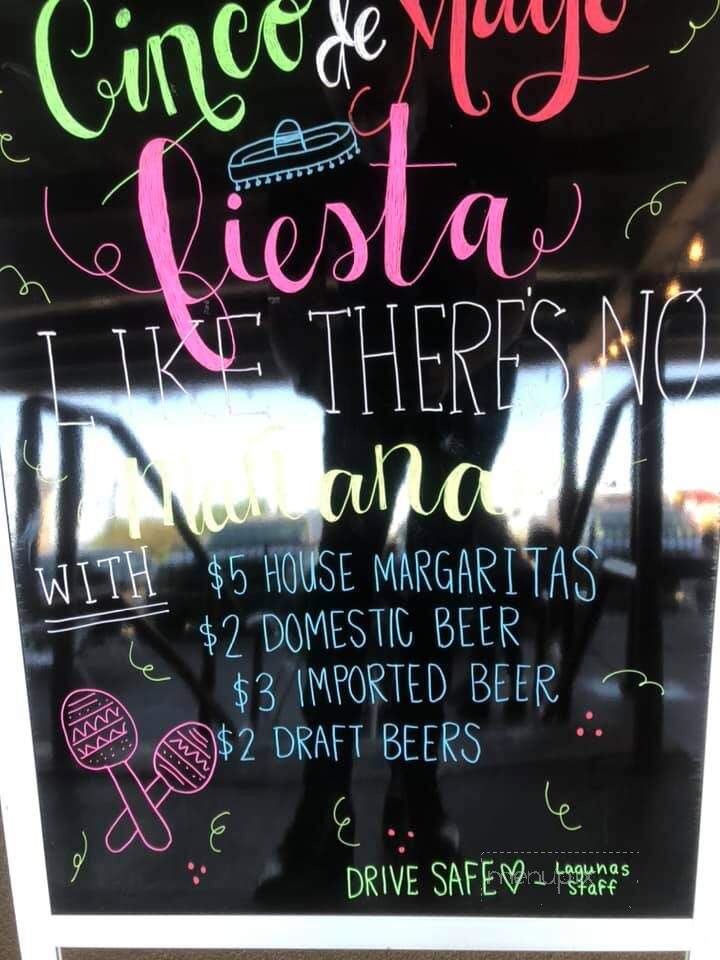 Cinco de Mayo
fiesta
LIKE THERE'S NO
Mañana
WITH
$5 HOUSE MARGARITAS
$2 DOMESTIC BEER
$3 IMPORTED BEER
$2 DRAFT BEERS
DRIVE SAFE♡ - Lagunas
Staff
menupix